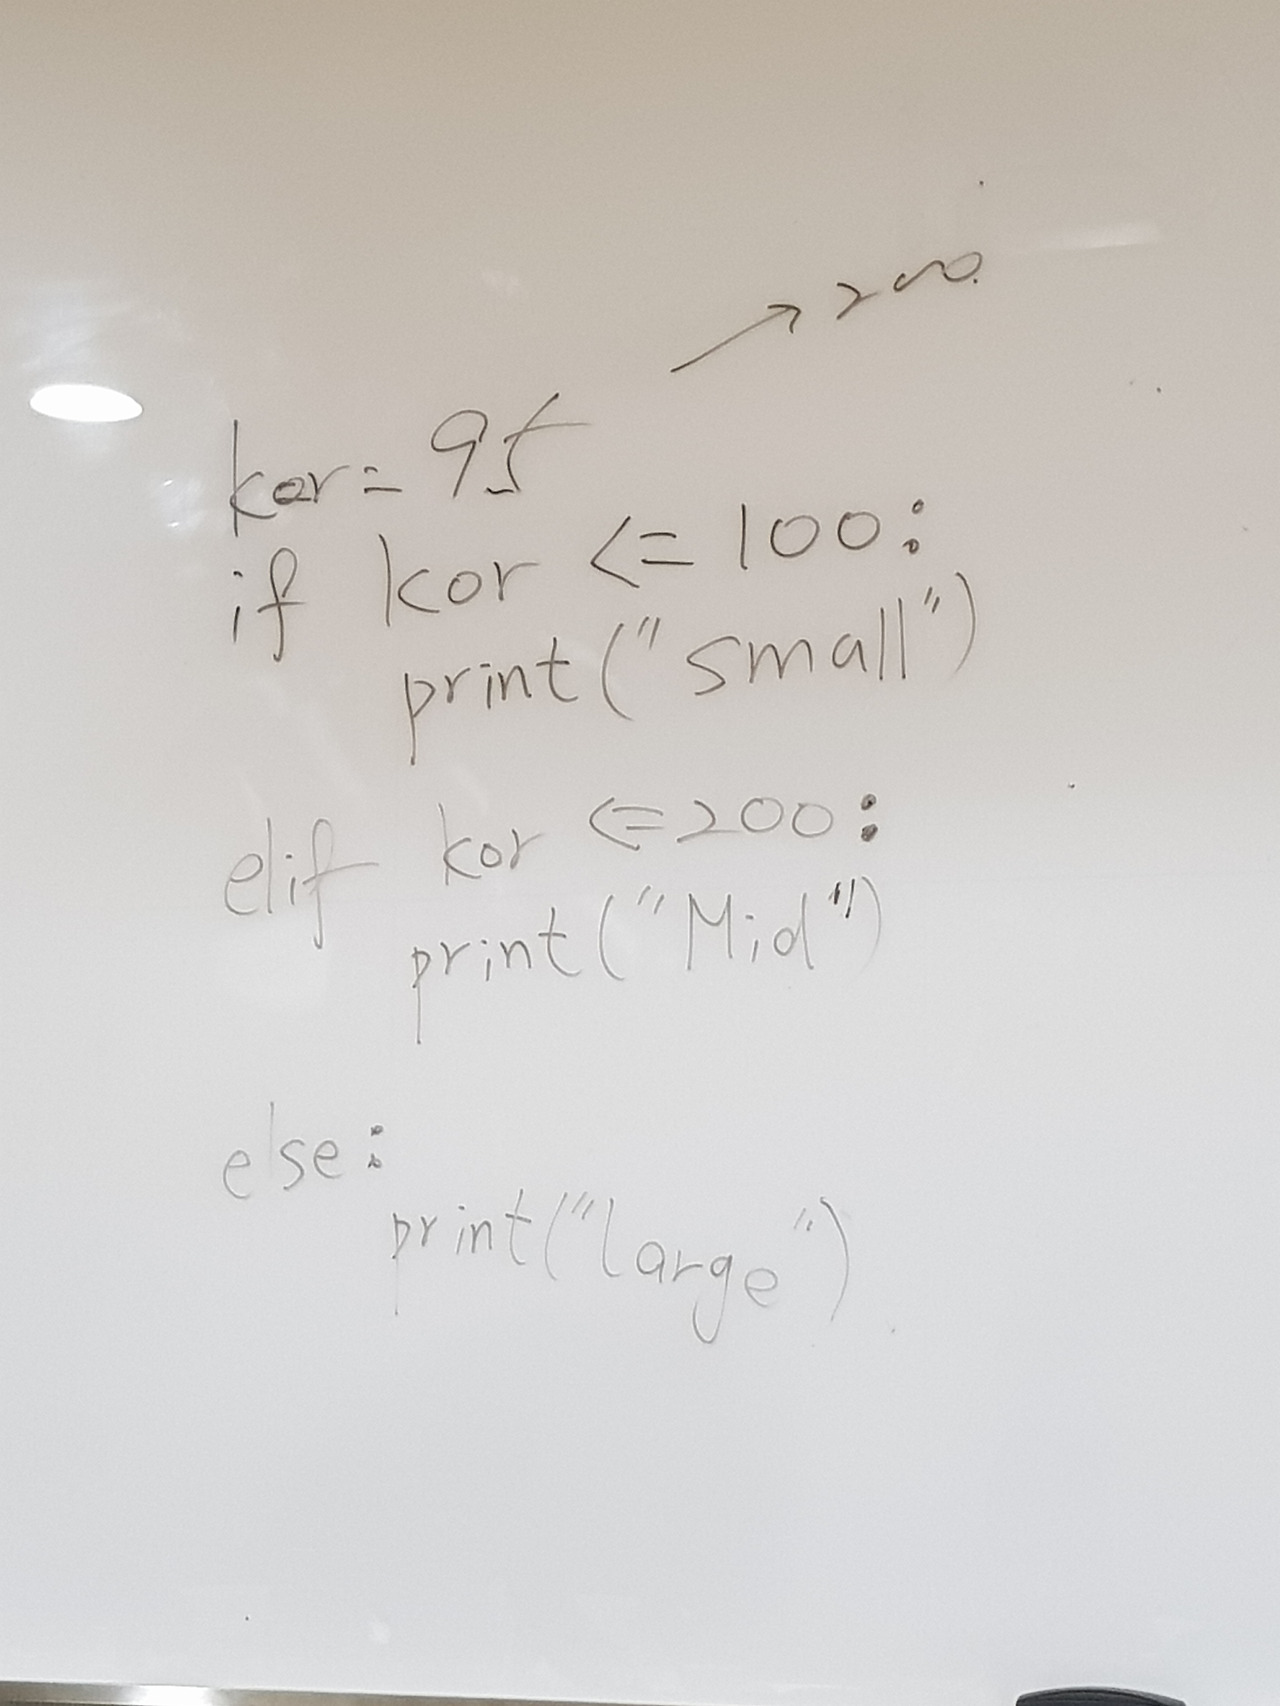 →200.
kor=95
if kor <= 100:
print("small")
elif kor <=200:
print("Mid")
else:
print("large")